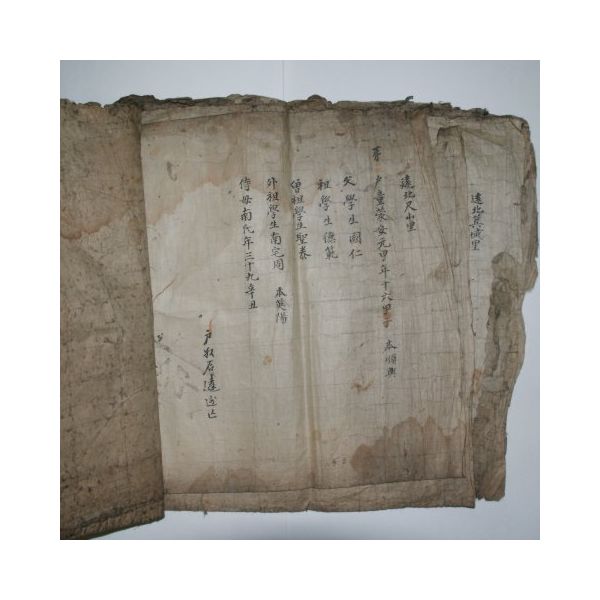 遠北異城里
遠北尺山里
第 戶童蒙安元甲年十六甲子 本順興
父學生國仁
祖學生德範
曾祖學生聖泰
外祖學生南宅周 本英陽
侍母南氏年三十九辛丑
戶奴石